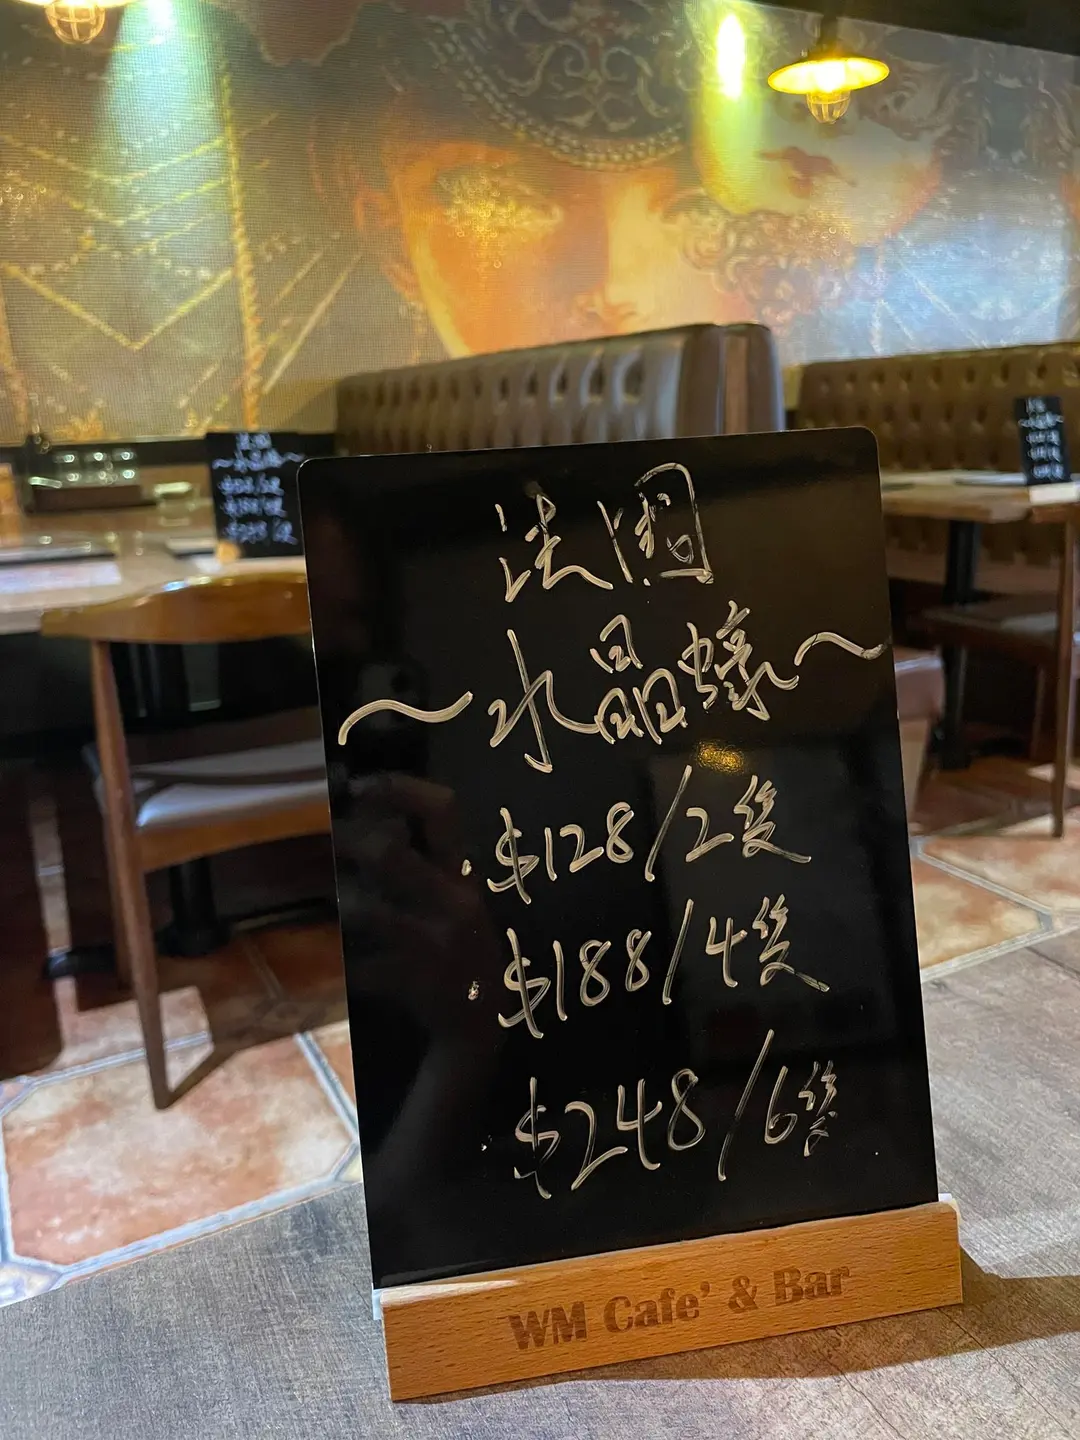 法國
～水晶蠔～
·$128/2隻
·$188/4隻
·$248/6隻
WM Cafe' & Bar